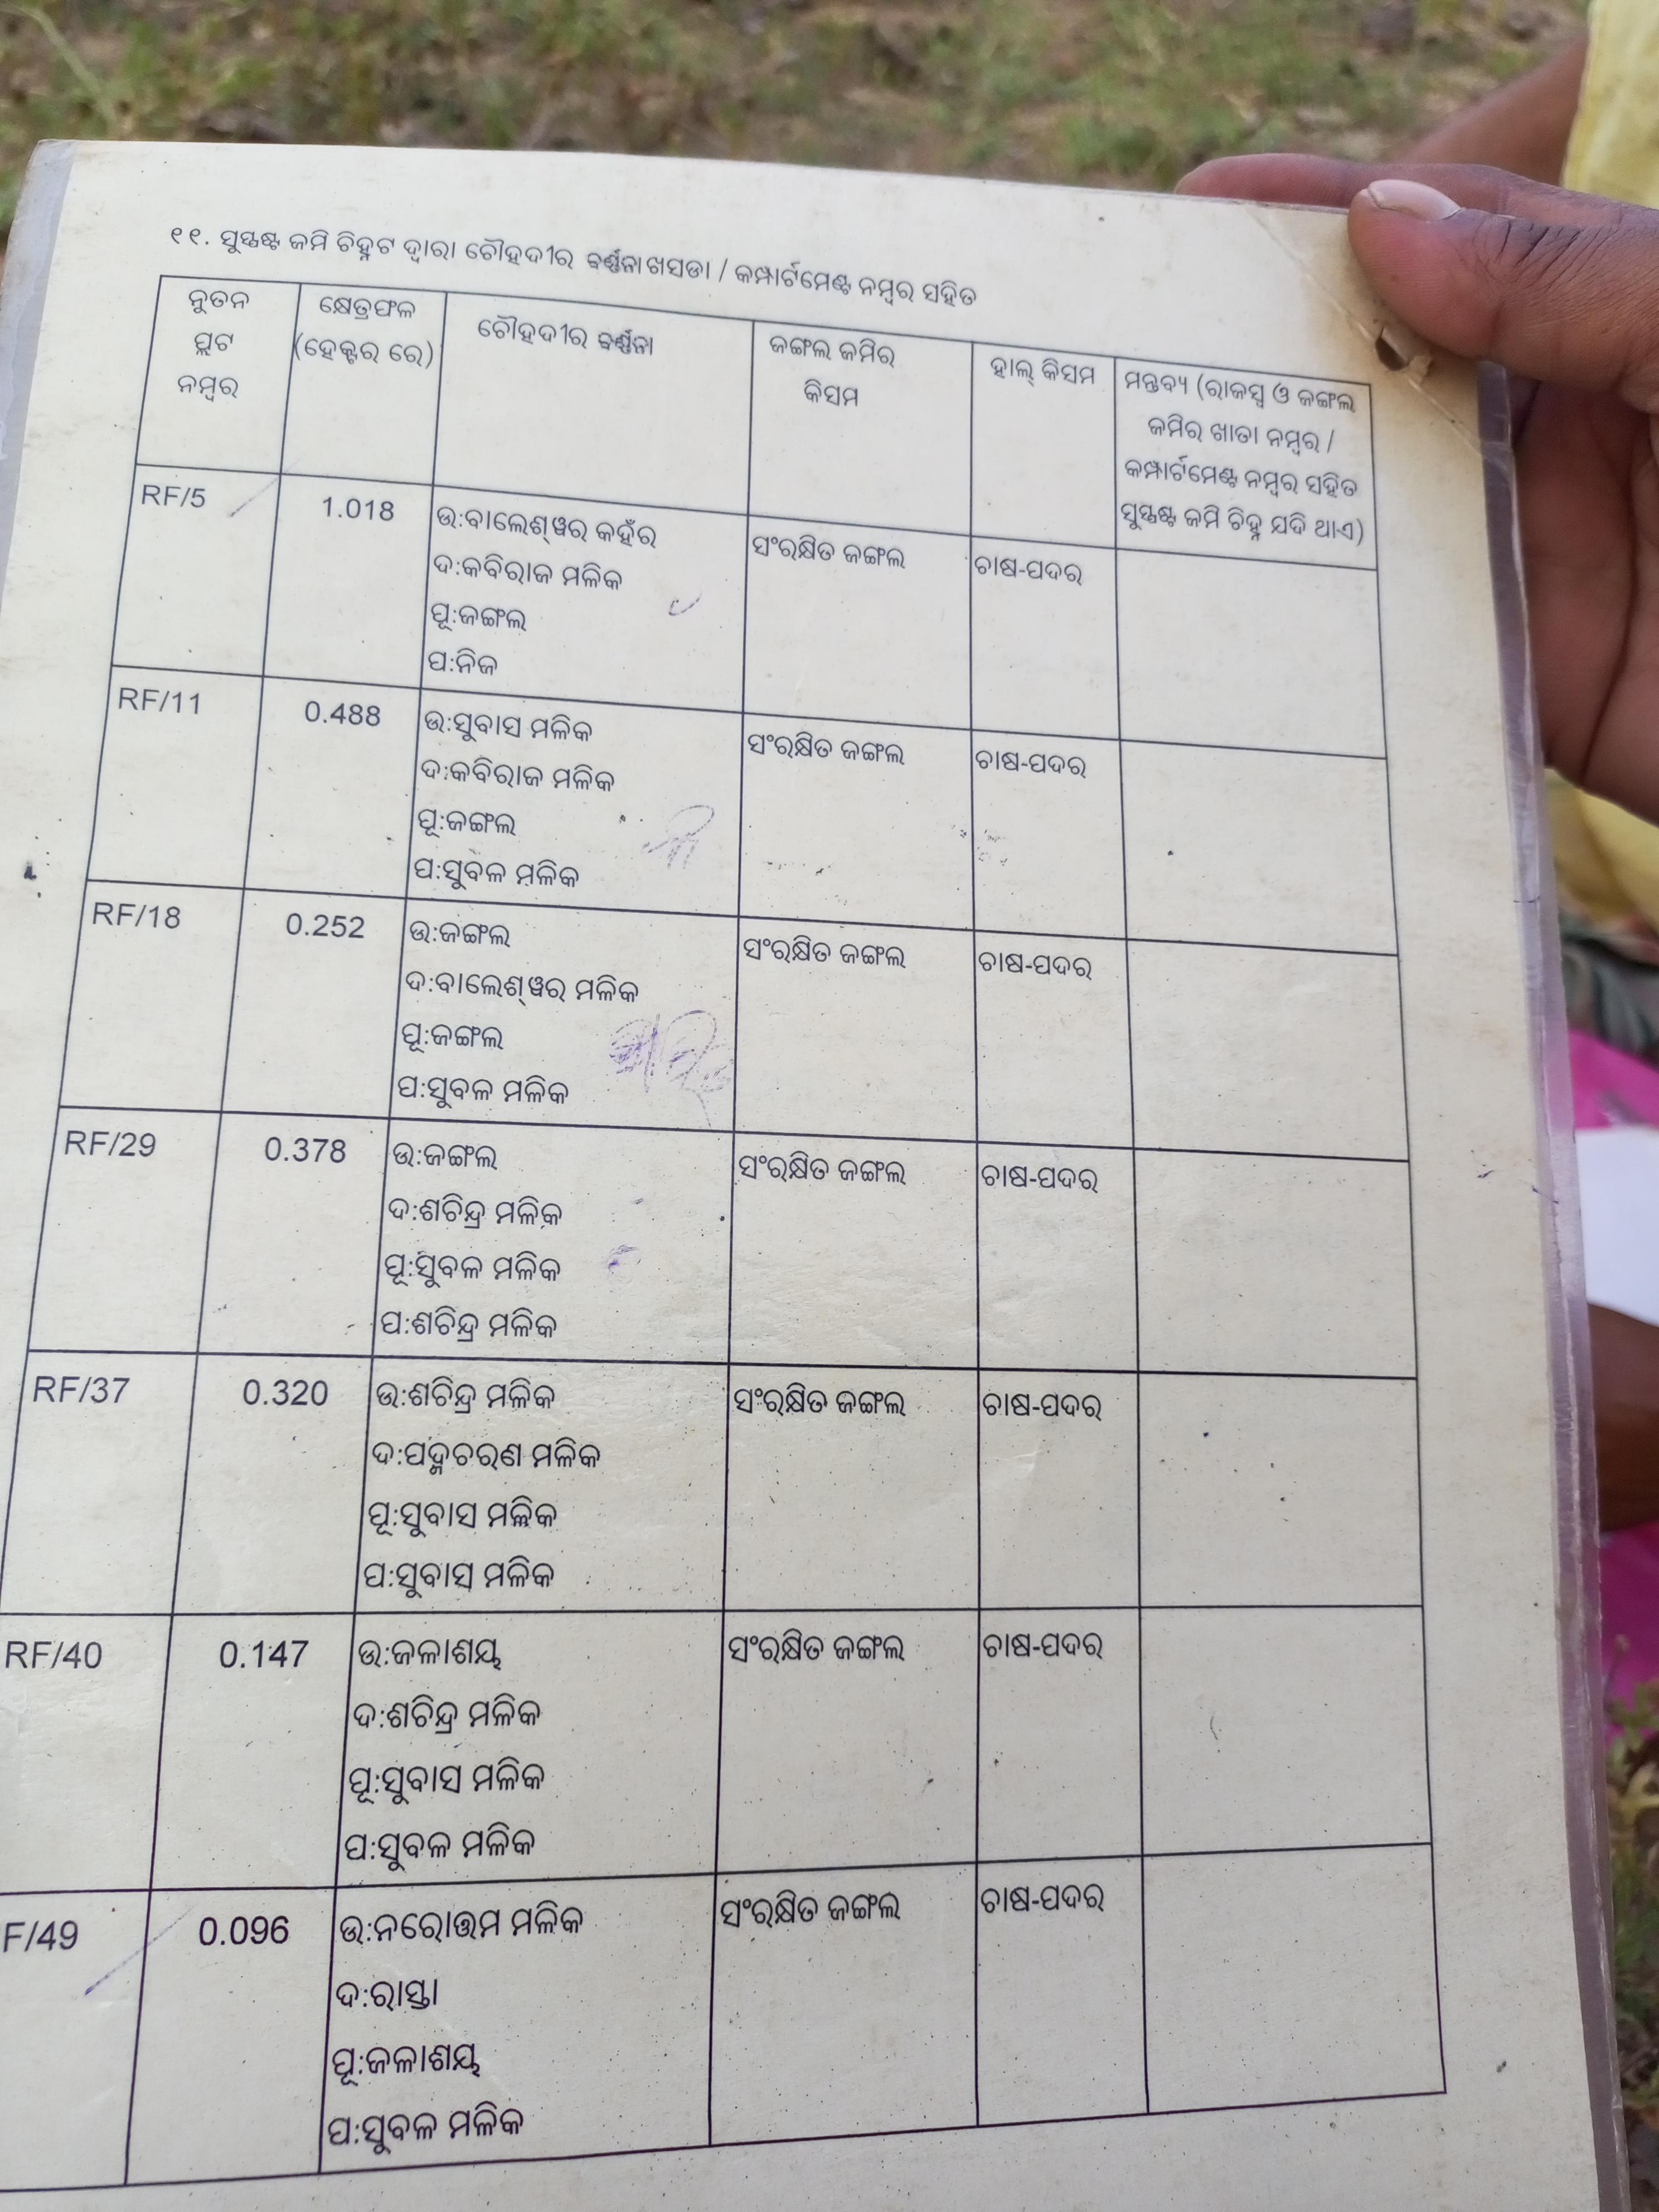 ୧୧. ସୁସ୍ପଷ୍ଟ ଜମି ଚିହ୍ନଟ ଦ୍ୱାରା ଚୌହଦୀର ବର୍ଣ୍ଣନା ଖସଡା / କମ୍ପାର୍ଟମେଣ୍ଟ ନମ୍ବର ସହିତ
ନୁତନ
ପ୍ଲଟ
ନମ୍ବର
କ୍ଷେତ୍ରଫଳ
(ହେକ୍ଟର ରେ)
ଚୌହଦୀର ବର୍ଣ୍ଣନା
ଜଙ୍ଗଲ ଜମିର
କିସମ
ହାଲ୍ କିସମ
ମନ୍ତବ୍ୟ (ରାଜସ୍ୱ ଓ ଜଙ୍ଗଲ
ଜମିର ଖାତା ନମ୍ବର /
କମ୍ପାର୍ଟମେଣ୍ଟ ନମ୍ବର ସହିତ
ସୁସ୍ପଷ୍ଟ ଜମି ଚିହ୍ନ ଯଦି ଥାଏ)
RF/5
1.018
ଉ:ବାଲେଶ୍ୱର କହଁର
ଦ:କବିରାଜ ମଳିକ
ପୂ:ଜଙ୍ଗଲ
ପ:ନିଜ
ସଂରକ୍ଷିତ ଜଙ୍ଗଲ
ଚାଷ-ପଦର
RF/11
0.488
ଉ:ସୁବାସ ମଳିକ
ଦ:କବିରାଜ ମଳିକ
ପୂ:ଜଙ୍ଗଲ
ପ:ସୁବଳ ମଳିକ
ସଂରକ୍ଷିତ ଜଙ୍ଗଲ
ଚାଷ-ପଦର
RF/18
0.252
ଉ:ଜଙ୍ଗଲ
ଦ:ବାଲେଶ୍ୱର ମଳିକ
ପୂ:ଜଙ୍ଗଲ
ପ:ସୁବଳ ମଳିକ
ସଂରକ୍ଷିତ ଜଙ୍ଗଲ
ଚାଷ-ପଦର
RF/29
0.378
ଉ:ଜଙ୍ଗଲ
ଦ:ଶଚିନ୍ଦ୍ର ମଳିକ
ପୂ:ସୁବଳ ମଳିକ
ପ:ଶଚିନ୍ଦ୍ର ମଳିକ
ସଂରକ୍ଷିତ ଜଙ୍ଗଲ
ଚାଷ-ପଦର
RF/37
0.320
ଉ:ଶଚିନ୍ଦ୍ର ମଳିକ
ଦ:ପଦ୍ମଚରଣ ମଳିକ
ପୂ:ସୁବାସ ମଳିକ
ପ:ସୁବାସ ମଳିକ
ସଂରକ୍ଷିତ ଜଙ୍ଗଲ
ଚାଷ-ପଦର
RF/40
0.147
ଉ:ଜଳାଶୟ
ଦ:ଶଚିନ୍ଦ୍ର ମଳିକ
ପୂ:ସୁବାସ ମଳିକ
ପ:ସୁବଳ ମଳିକ
ସଂରକ୍ଷିତ ଜଙ୍ଗଲ
ଚାଷ-ପଦର
F/49
0.096
ଉ:ନରୋତ୍ତମ ମଳିକ
ଦ:ରାସ୍ତା
ପୂ:ଜଳାଶୟ
ପ:ସୁବଳ ମଳିକ
ସଂରକ୍ଷିତ ଜଙ୍ଗଲ
ଚାଷ-ପଦର